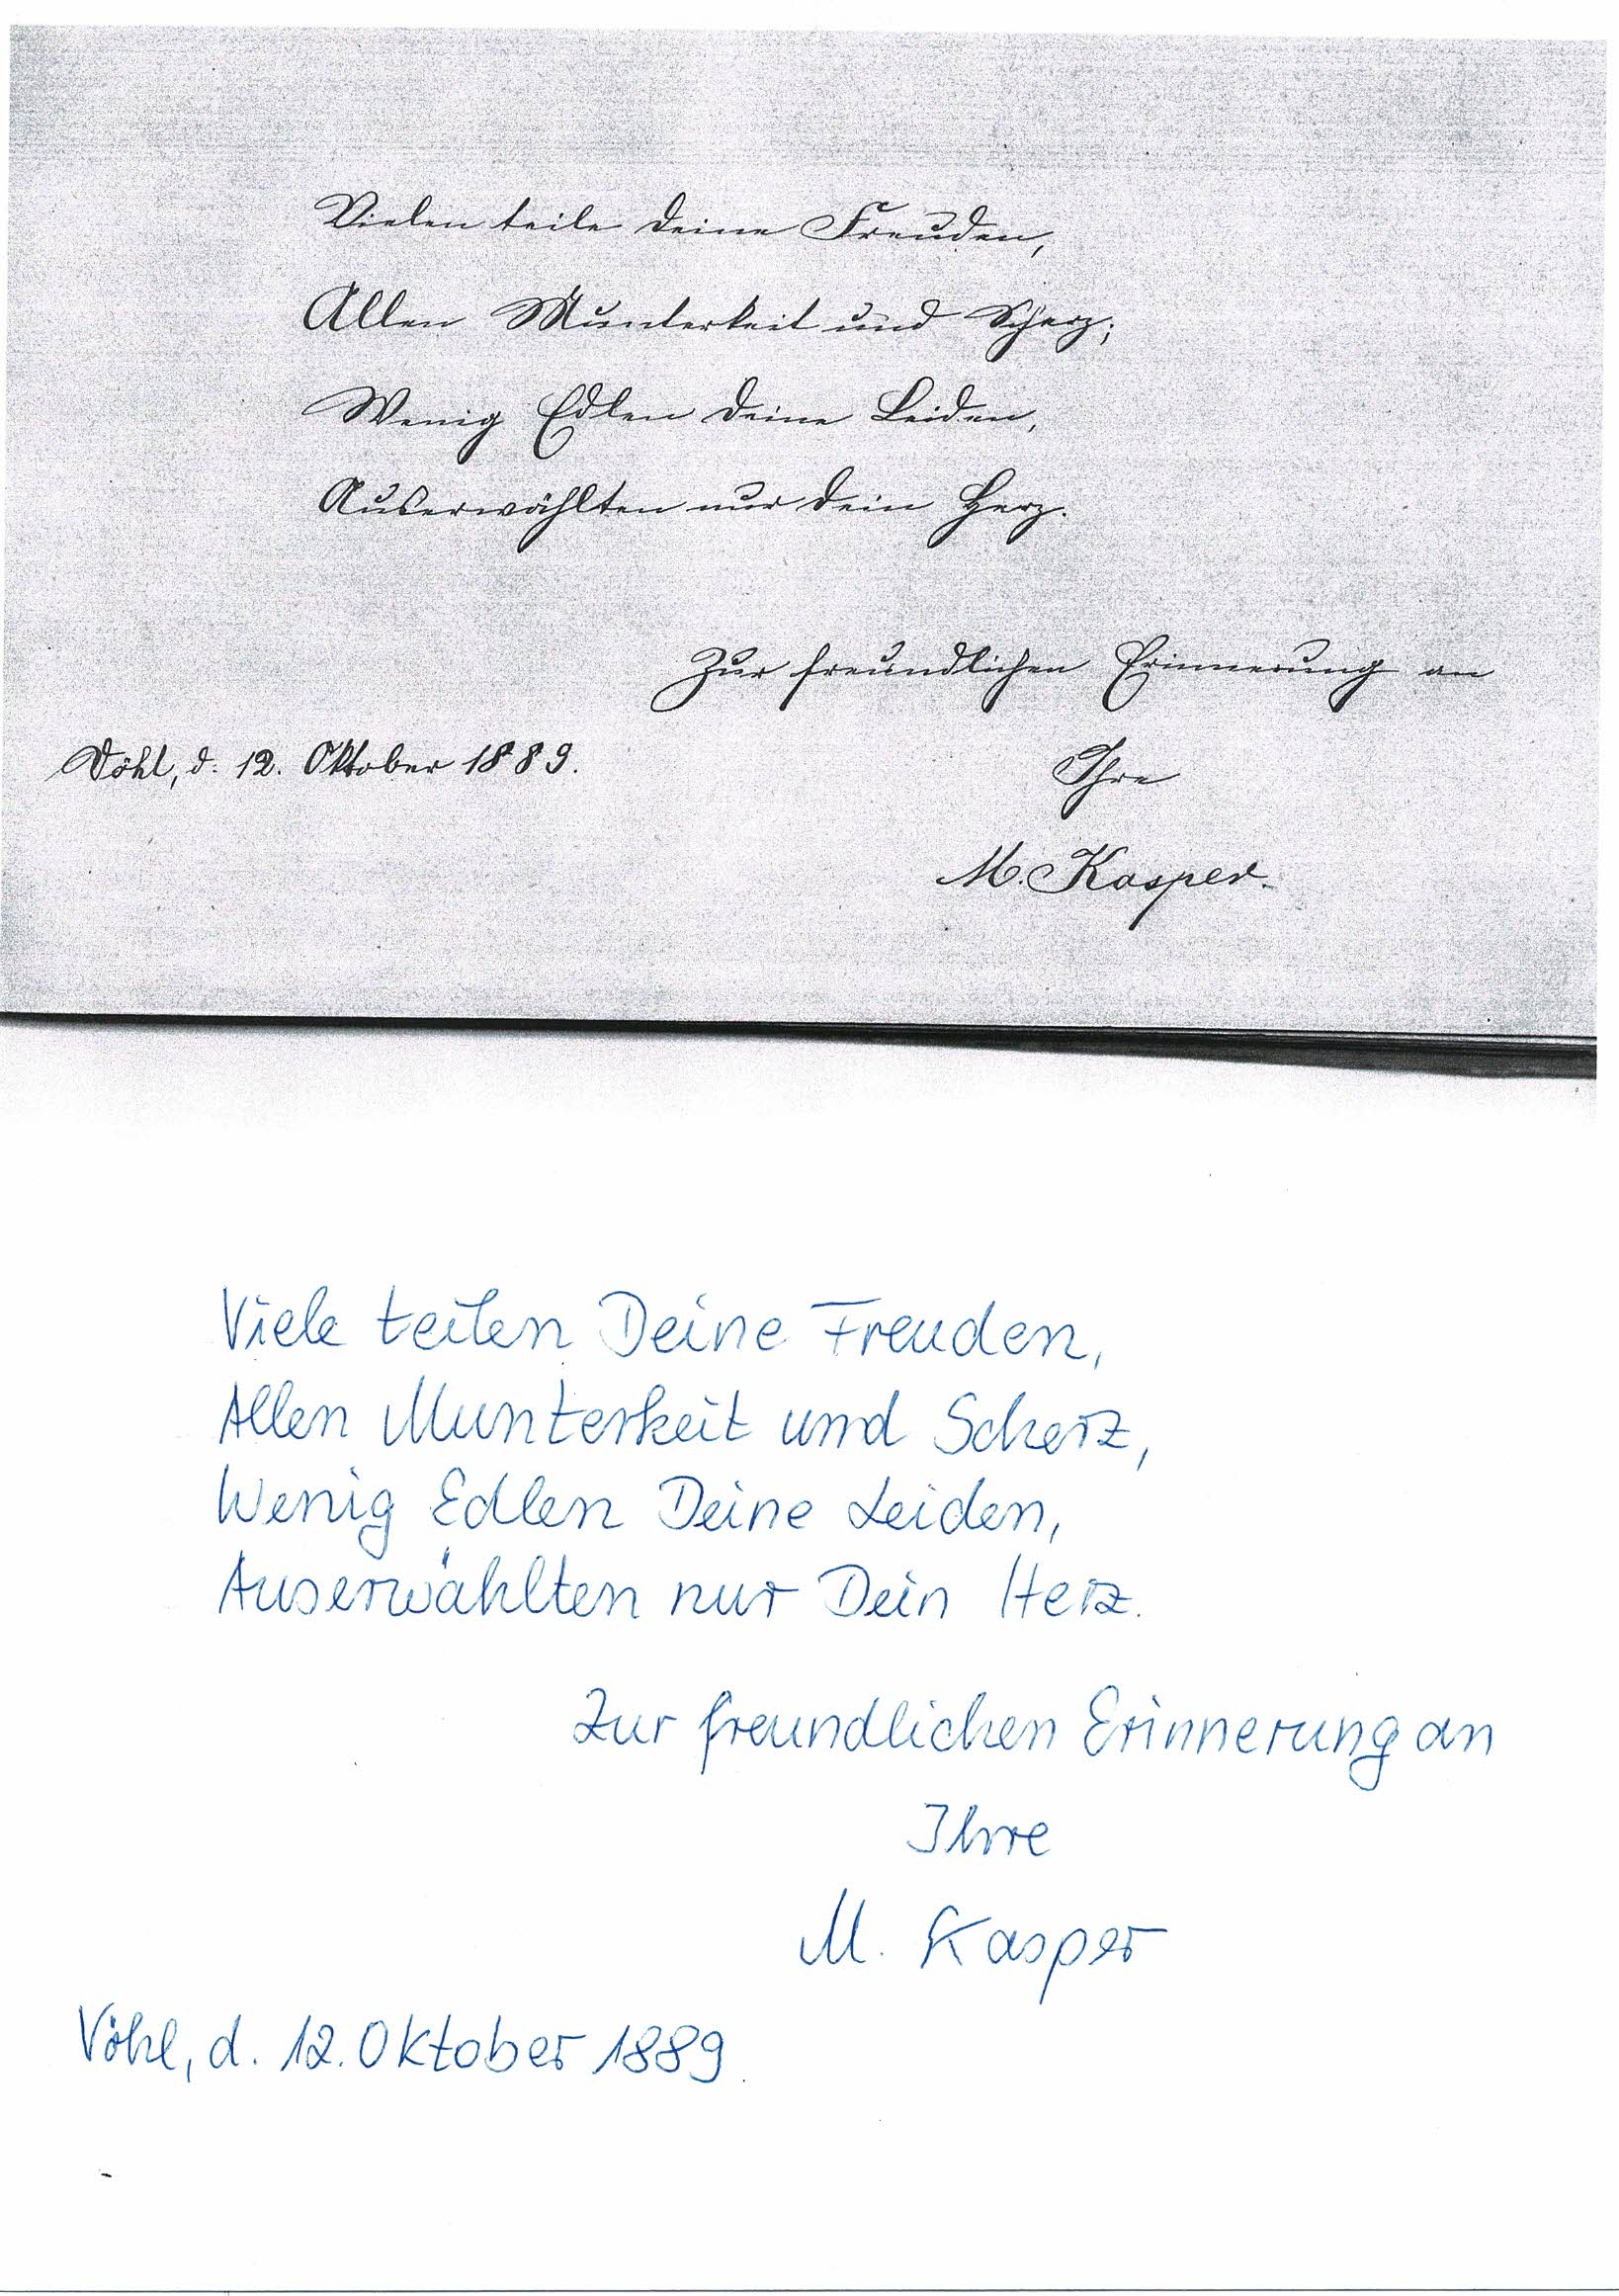 Vielen teile deine Freuden,
Allen Munterkeit und Scherz;
Wenig Edlen deine Leiden,
Auserwählten nur dein Herz.
Zur freundlichen Erinnerung an
Vöhl, d. 12. Oktober 1889.
Ihre
M. Kasper.
Viele teilen Deine Freuden,
Allen Munterkeit und Scherz,
Wenig Edlen Deine Leiden,
Auserwählten nur Dein Herz.
Zur freundlichen Erinnerung an
Ihre
M. Kasper
Vöhl, d. 12. Oktober 1889